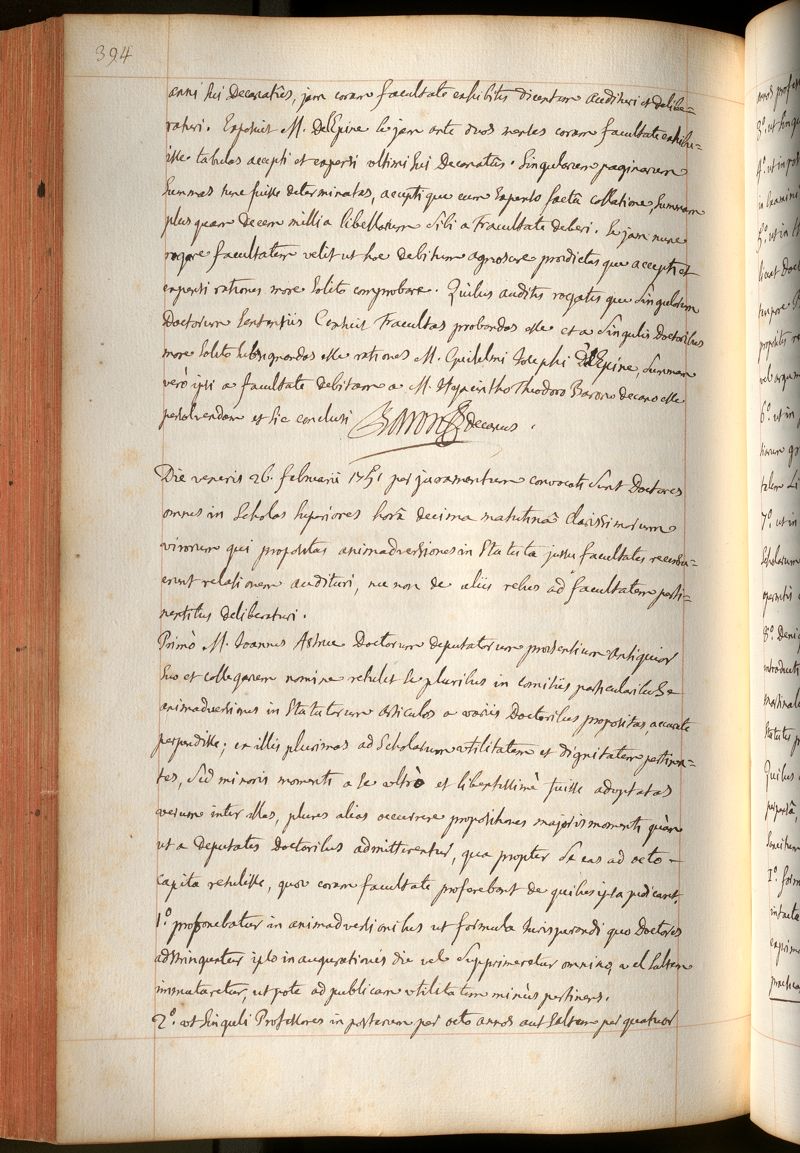 394
anni sui Decanatûs, jam coram facultate exhibitis dicentem audituri et delibe=
raturi. Exposuit M. DeLEpine se jam ante duos menses coram facultate exhibu=
isse tabulas accepti et expensi ultimi sui Decanatûs. Singularum paginarum
summas tunc fuisse determinatas, acceptique cum expenso factâ collatione, summam
plusquam decem millia libellarum sibi a Facultate deberi. Se jam nunc
rogare facultatem velit ut hoc debitum agnoscere prædictasque accepti et
expensi rationes more solito comprobare. Quibus auditis rogatisque singulorum
Doctorum sententiis Censuit Facultas probandas esse et a singulis Doctoribus
more solito subsignandas esse rationes M. Guillelmi Josephi DeLEpine, summam
verò ipsi a facultate debitam a M. Hyacintho Theodoro Baron decano esse
persolvendam et sic conclusi Baron decanus.
Die veneris 26. februarii 1751 per juramentum convocati sunt Doctores
omnes in Scholas superiores horâ decima matutinâ clarissimorum
virorum qui propositas animadversiones in Statuta jussu facultatis recensu=
erunt relationem audituri, nec non de aliis rebus ad facultatem perti=
nentibus deliberaturi.
Primò M. Joannes Astruc Doctorum deputatorum præsentium antiquior
suo et collegarum nomine retulit se pluribus in comitiis particularibus
animadversiones in Statutorum articulos a variis Doctoribus propositas, accurate
perpendisse; ex illis plurimas ad Scholarum utilitatem et dignitatem pertinen=
tes, sed minoris momenti a se ultrò et libentissimè fuisse adoptatas
verum inter illas, plures alias occurrere propositiones majoris momenti quàm
ut a deputatis Doctoribus admitterentur, qua propter se eas ad octo
capita retulisse, quæ coram facultate proferebant de quibus ipsa judicaret.
1.° proponebatur in animadversionibus ut formula Jurisjurandi quo Doctores
adstringuntur ipso inaugurationis die vel supprimeretur omnino, vel saltem
immutaretur, ut pote ad publicam utilitatem minùs pertinens.
2.° ut singuli Professores in posterum per octo annos aut saltem per quatuor